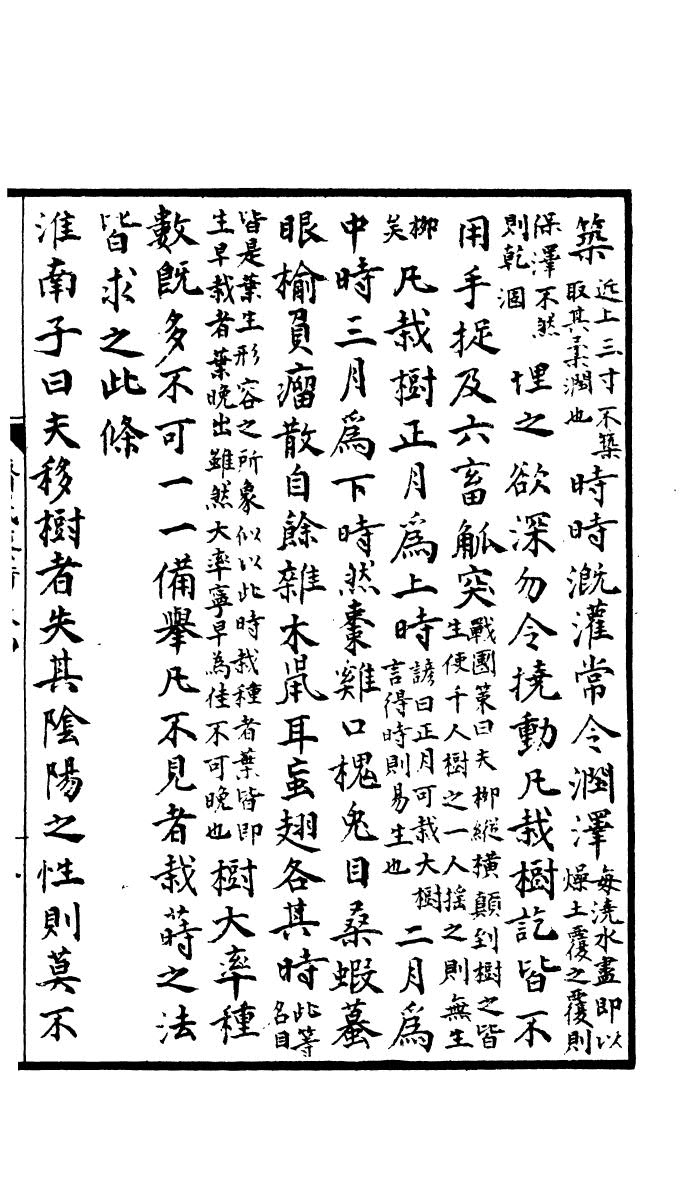 築近上三寸不築取其柔潤也時時溉灌常令潤澤每澆水盡即以燥土覆之覆則
保澤不然則乾涸埋之欲深勿令撓動凡栽樹訖皆不
用手捉及六畜觝突戰國策曰夫栁縱橫顛到樹之皆生使千人樹之一人揺之則無生
栁矣凡栽樹正月為上時諺曰正月可栽大樹言得時則易生也二月為
中時三月為下時然棗雞口槐兔目桑蝦蟇
眼榆負瘤散自餘雜木鼠耳䖟翅各其時此等名目
皆是葉生形容之所象似以此時栽種者葉皆即生早栽者葉晚出雖然大率寧早為佳不可晚也樹大率種
數既多不可一一備舉凡不見者栽蒔之法
皆求之此條
淮南子曰夫移樹者失其陰陽之性則莫不